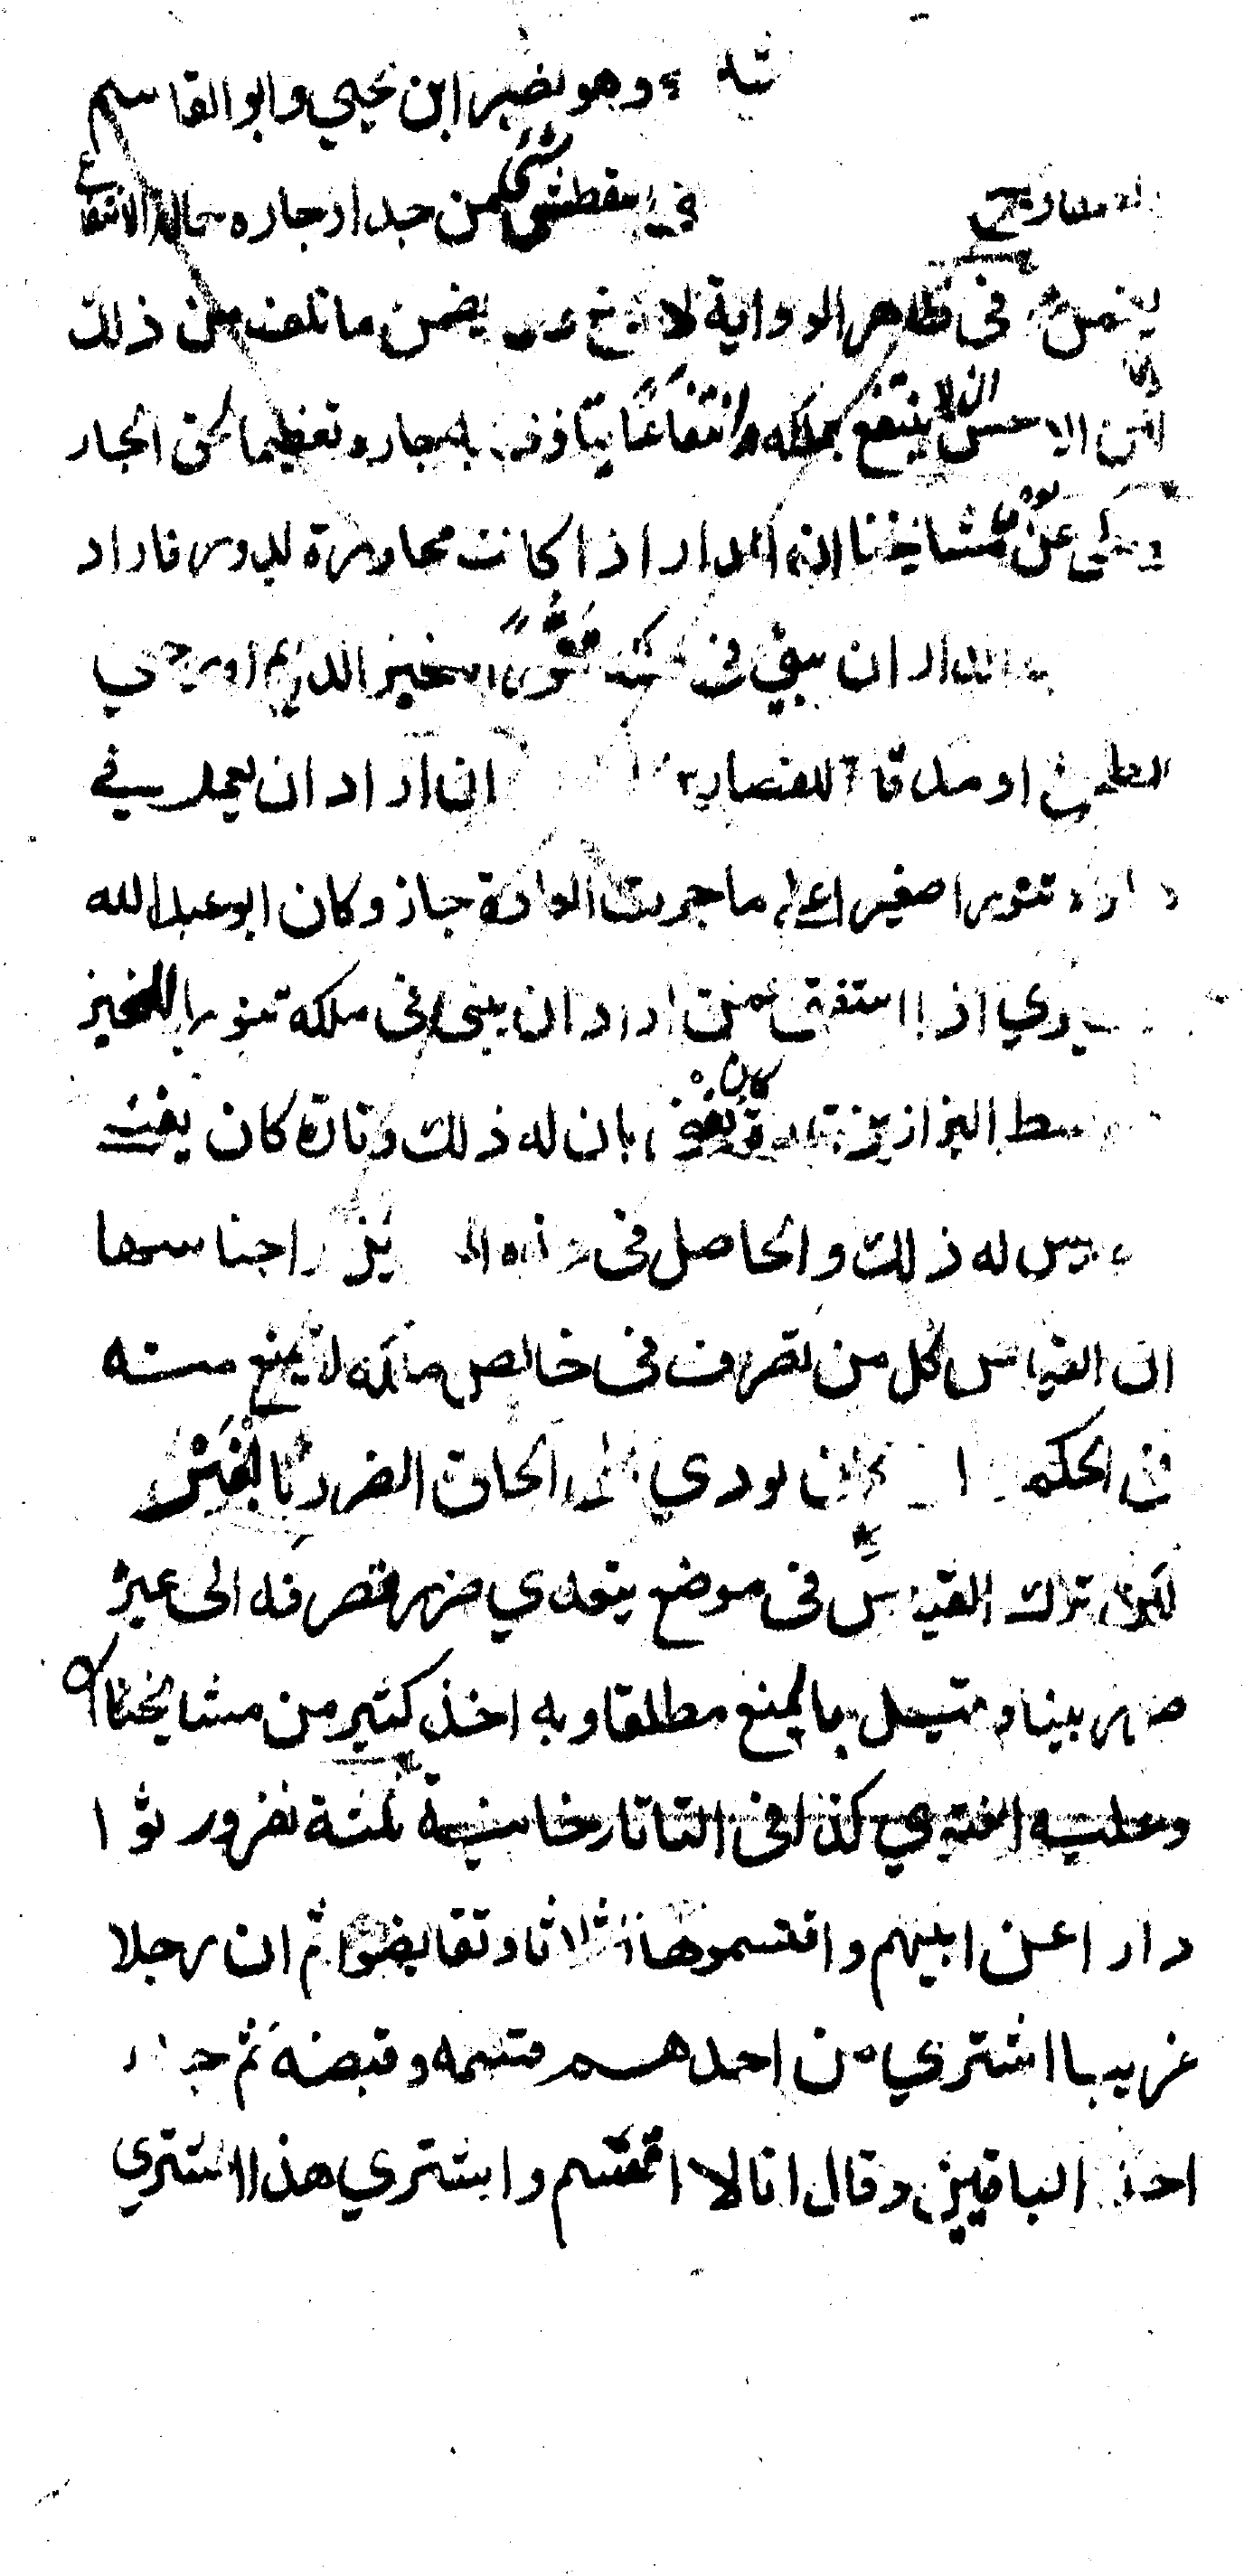 وهو نصير ابن يحيى وابو القاسم
في سقط شيء من جدار جاره حالة الانتفاع
يضمن في ظاهر الرواية لا يضمن ما تلف من ذلك
الاحسن ان لا ينتفع بملكه انتفاعا يتاذى به جاره وتعظيما لحق الجار
عن مشايخنا ان الدار اذا كانت مجاورة لدور فاراد
الدار ان يبني في تنورا للخبز الدايم او رحى
للطحن او مدقات للقصارين ان اراد ان يعمل في
داره تنورا صغيرا على ما جرت العادة جاز وكان ابو عبد الله
اذا استفتي عمن اراد ان يبنى في ملكه تنورا للخبز
وسط البزازين تارة كان يفتي بان له ذلك وتارة كان يفتي
ليس له ذلك والحاصل في اجناسها
ان القياس كل من تصرف في خالص ملكه لا يمنع منه
في الحكم يودي الى الحاق الضرر بالغير
لكن ترك القياس في موضع يتعدي ضرر تصرفه الى غيره
ضررا بينا وقيل بالمنع مطلقا وبه اخذ كثير من مشايخنا
وعليه الفتوي كذا في التاتارخانية ثلثة نفر ورثوا
دارا عن ابيهم واقتسموها اثلاثا وتقابضوا ثم ان رجلا
غريبا اشتري من احدهم قسمه وقبضه ثم جاء
احد الباقين وقال انا لا اقتسم واشتري هذا المشتري